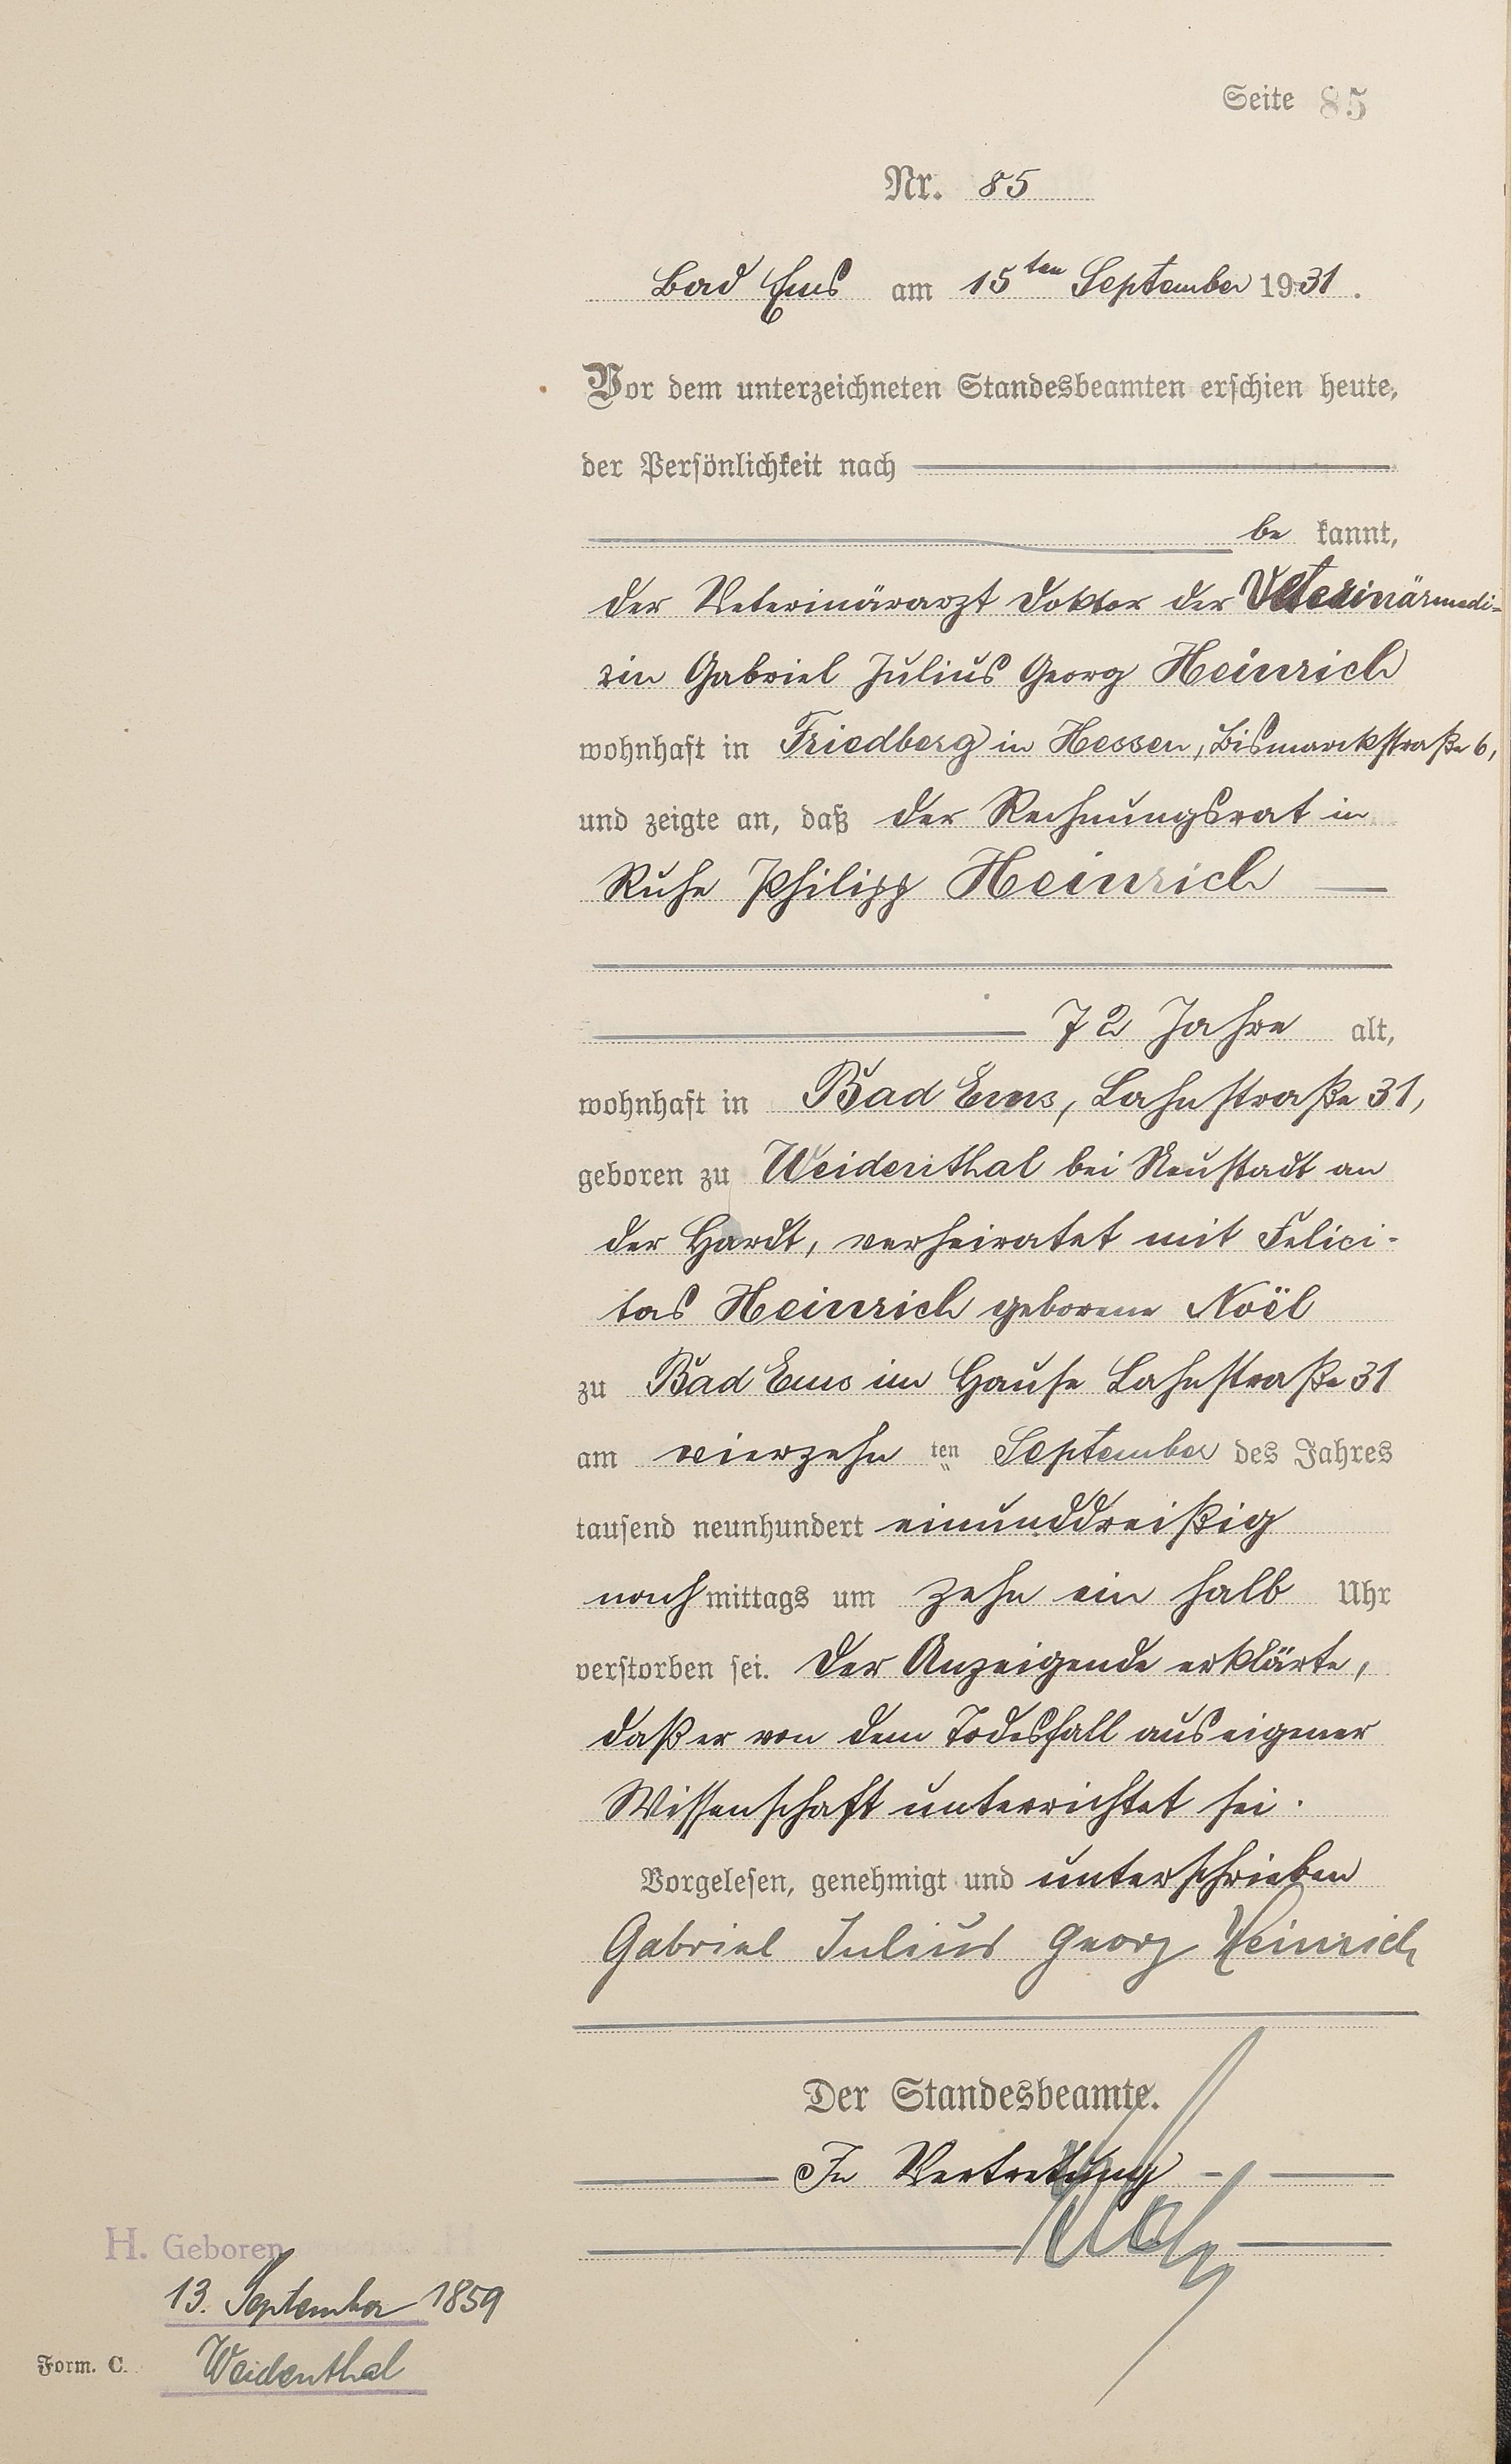 Seite 85
Nr. 85
Bad Ems am 15ten September 1931.
Vor dem unterzeichneten Standesbeamten erschien heute,
der Persönlichkeit nach
be kannt,
der Veterinärarzt Doktor der Veterinärmedi-
zin Gabriel Julius Georg Heinrich
wohnhaft in Friedberg in Hessen, Bismarckstraße 6,
und zeigte an, daß der Rechnungsrat in
Ruhe Philipp Heinrich
72 Jahre alt,
wohnhaft in Bad Ems, Lahnstraße 31,
geboren zu Weidenthal bei Neustadt an
der Hardt, verheiratet mit Felici-
tas Heinrich geborene Noël
zu Bad Ems im Hause Lahnstraße 31
am vierzehn ten September des Jahres
tausend neunhundert einunddreißig
nachmittags um zehn ein halb Uhr
verstorben sei. Der Anzeigende erklärte,
daß er von dem Todesfall aus eigener
Wissenschaft unterrichtet sei.
Vorgelesen, genehmigt und unterschrieben
Gabriel Julius Georg Heinrich
Der Standesbeamte.
In Vertretung
H. Geboren
13. September 1859
Weidenthal
Form. C.